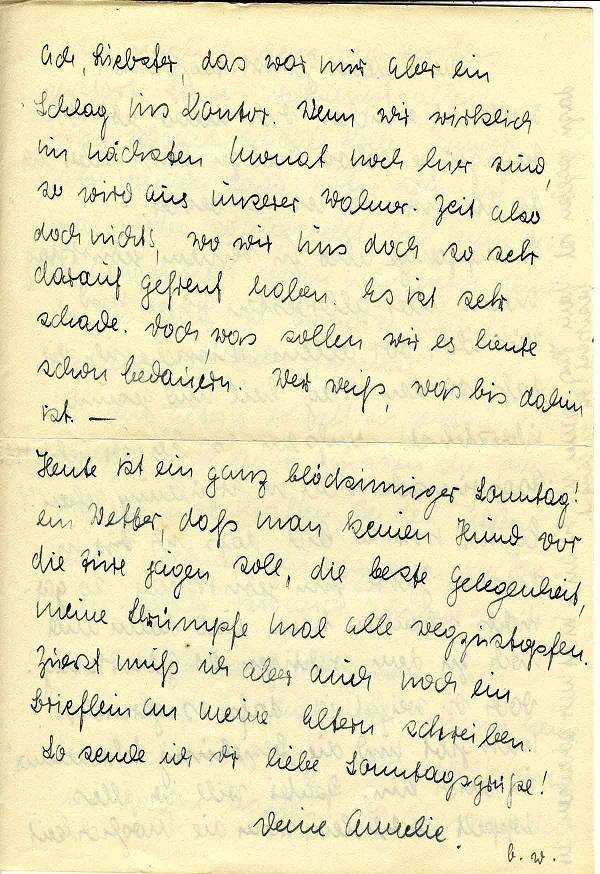 Ach, Liebster, das war mir aber ein
Schlag ins Kontor. Wenn wir wirklich
im nächsten Monat noch hier sind,
so wird aus unserer Zeit also
doch nichts, wo wir uns doch so sehr
darauf gefreut haben. Es ist sehr
schade. Doch, was sollen wir es heute
schon bedauern. Wer weiß, was bis dahin
ist. —
Heute ist ein ganz blödsinniger Sonntag!
ein Wetter, daß man keinen Hund vor
die Türe jagen soll, die beste Gelegenheit,
meine Strümpfe mal alle wegzustopfen.
Zuerst muß ich aber auch noch ein
Brieflein an meine Eltern schreiben.
So sende ich Dir liebe Sonntagsgrüße!
Deine Annelie.
b. w.